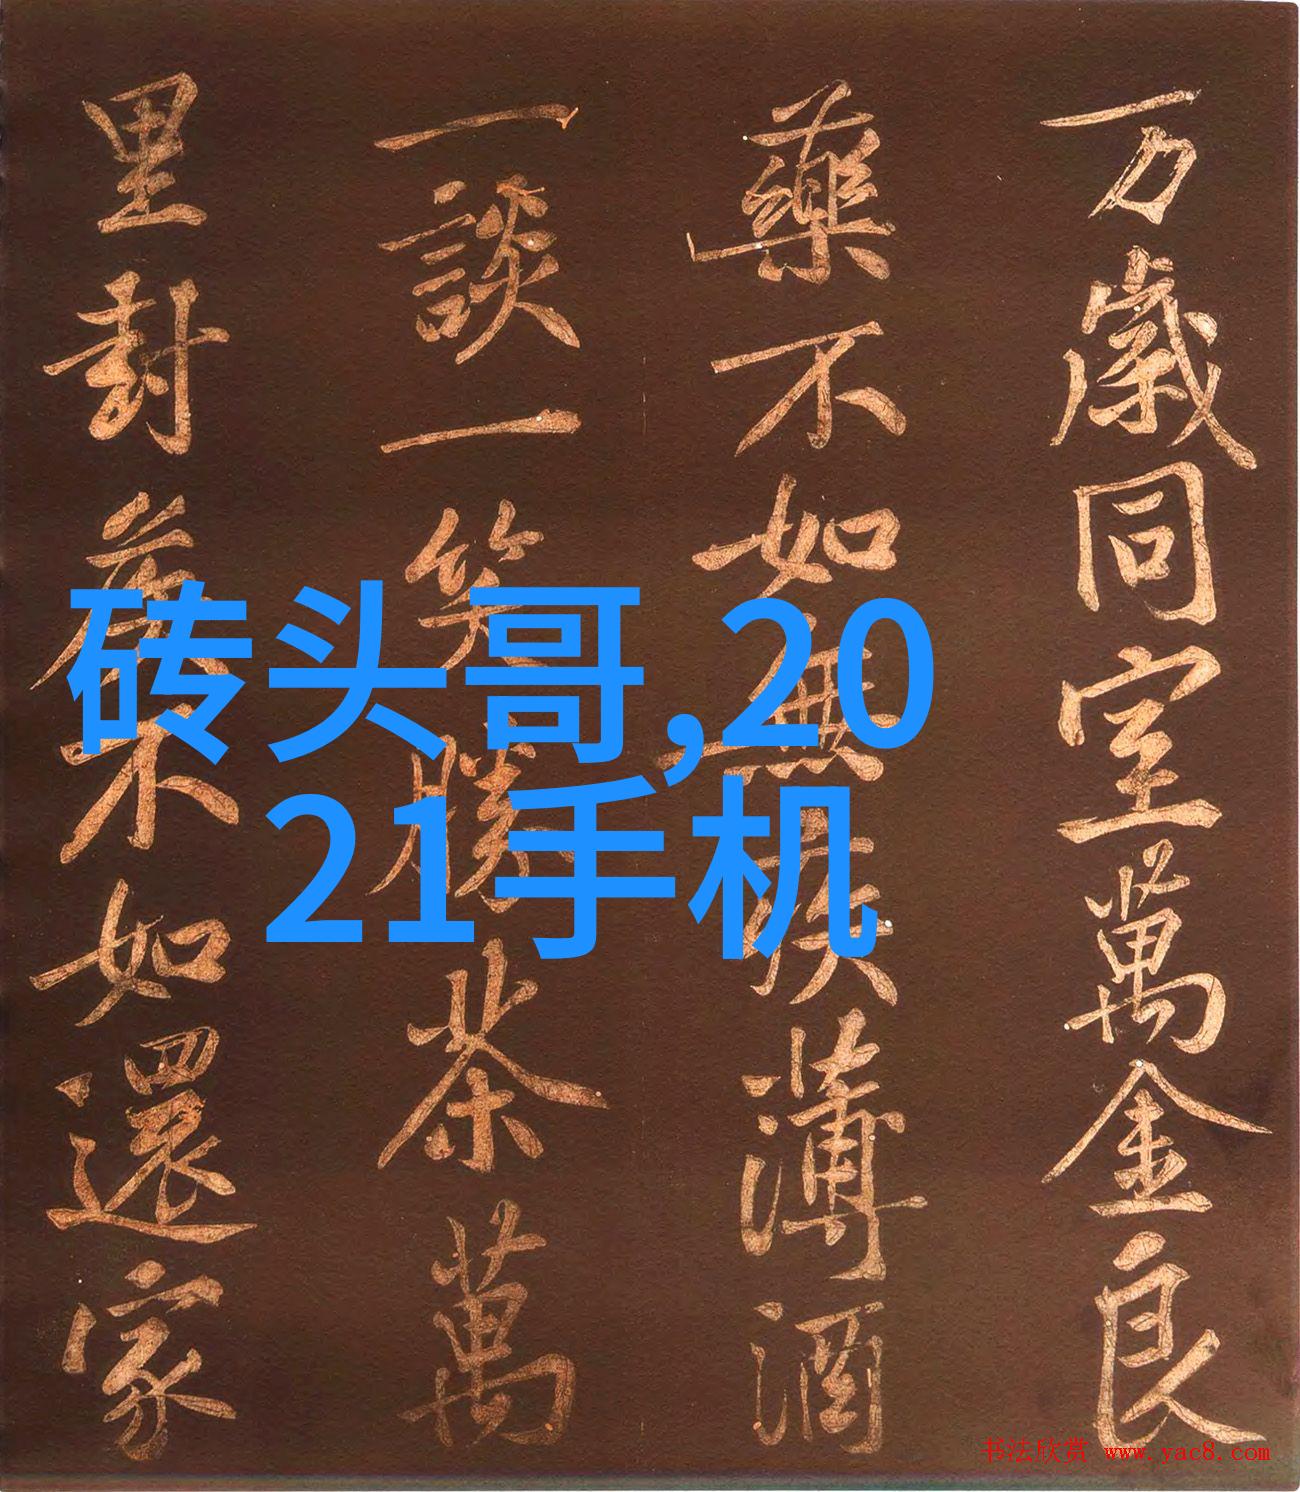 万歲同室萬金良
藥不如無疾薄酒
一談一笑勝茶萬
里封侯不如還家
砖头哥,20
21手机
书法欣赏 www.yac8.com